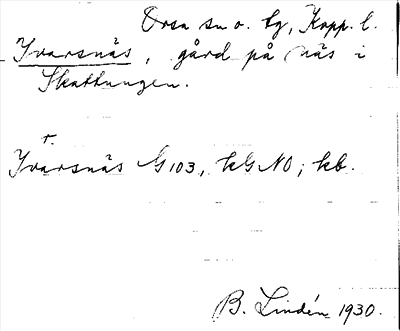 Orsa sn o. tg, Kopp. l.
Ivarsnäs, gård på näs i
Skattungen.
r.
Ivarsnäs G 103, kG NO; kb.
B. Lindén 1930.